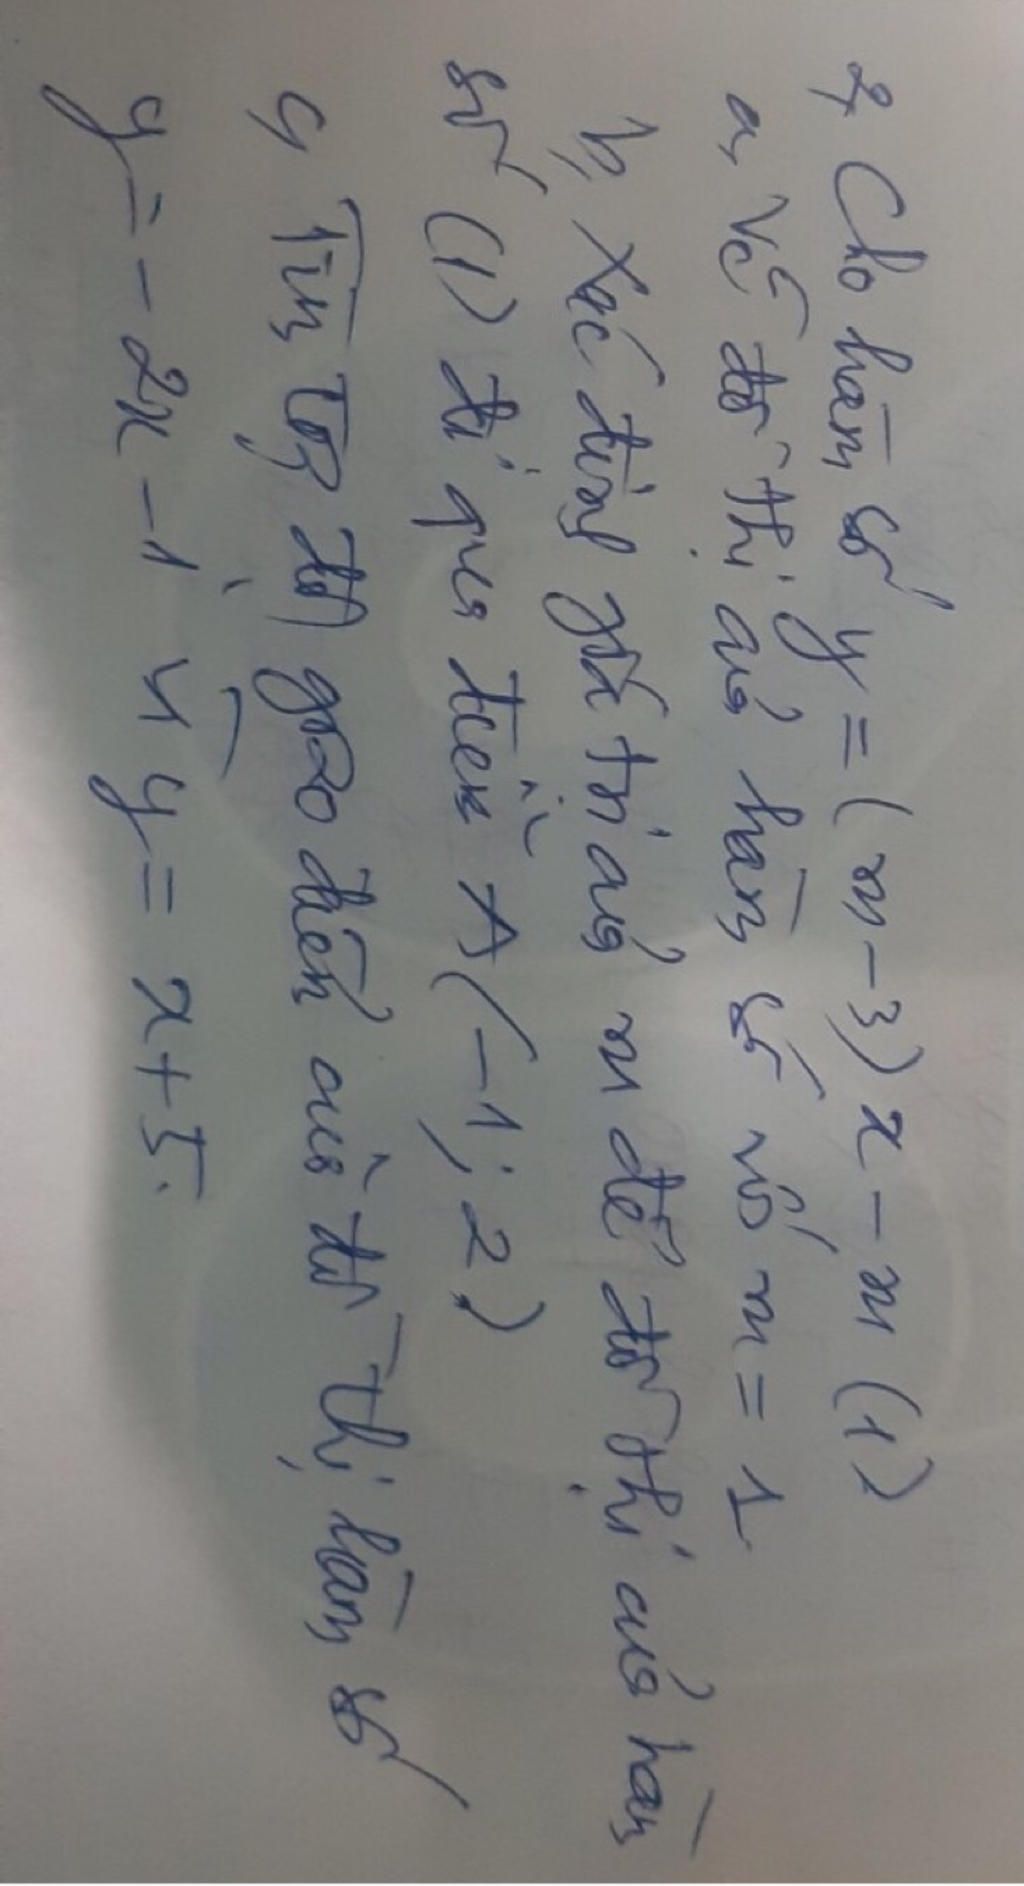 2, Cho hàm số y = (m-3)x - m (1)
a, Vẽ đồ thị của hàm số với m = 1
b, Xác định giá trị của m để đồ thị của hàm
số (1) đi qua điểm A(-1; 2)
c, Tìm toạ độ giao điểm của đồ thị hàm số
y = -2x - 1 và y = x + 5.